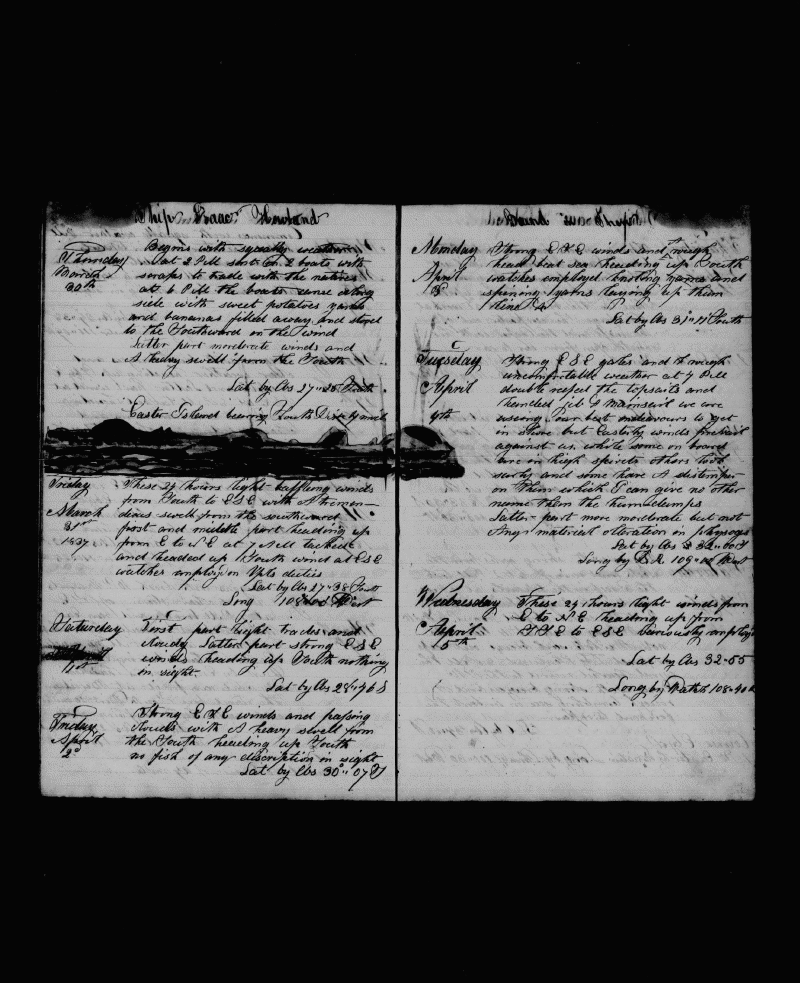 Ship Isaac Howland
Thursday
March
30th
Begins with squally weather
at 2 PM sent in 2 boats with
scraps to trade with the natives
at 6 PM the boats came along
side with sweet potatoes yams
and bananas filled away and stood
to the Southward on the wind
Latter part moderate winds and
A heavy swell from the South
Lat by Obs 27" 28 South
Easter Island bearing South Dist
Friday
March
31st
1837
These 24 hours light baffling winds
from South to ESE with A tremen-
dious swell from the southward
post and middle part heading up
from E to NE at 7 AM tacked
and headed up South winds at ESE
watches employ on Spts duties
Lat by Obs 27" 38 South
Long 108 West
Saturday
1st
First part light trades and
cloudy Latter part strong ESE
winds heading up South nothing
in sight
Lat by Obs 28" 46 S
Friday
April
2d
Strong E & E winds and passing
clouds with A heavy swell from
the South heading up South
no fish of any discription in sight
Lat by Obs 30" 07 S
Monday
April
3d
Strong E & E winds and rough
head beat sea heading up South
watches employed knoting yarns and
spinning yarns laying up them
Lat by Obs 31" 11 South
Tuesday
April
4th
Strong ESE gales and through
uncomfortable weather at 7 PM
double reefed the topsails and
handed jib & mainsail we are
using our best endeavours to get
in shore but Easterly winds prevail
against us, while some on board
are in high spirits others look
surly and some have A distemper
on them which I can give no other
name them the humdumps
Latter part more moderate but not
Any material alteration in
Lat by Obs 32" 00 S
Long by West
Wednesday
April
5th
These 24 hours light winds from
E to NE heading up from
SSE to ESE variously employ
Lat by Obs 32-55
Long by Watch 108-40